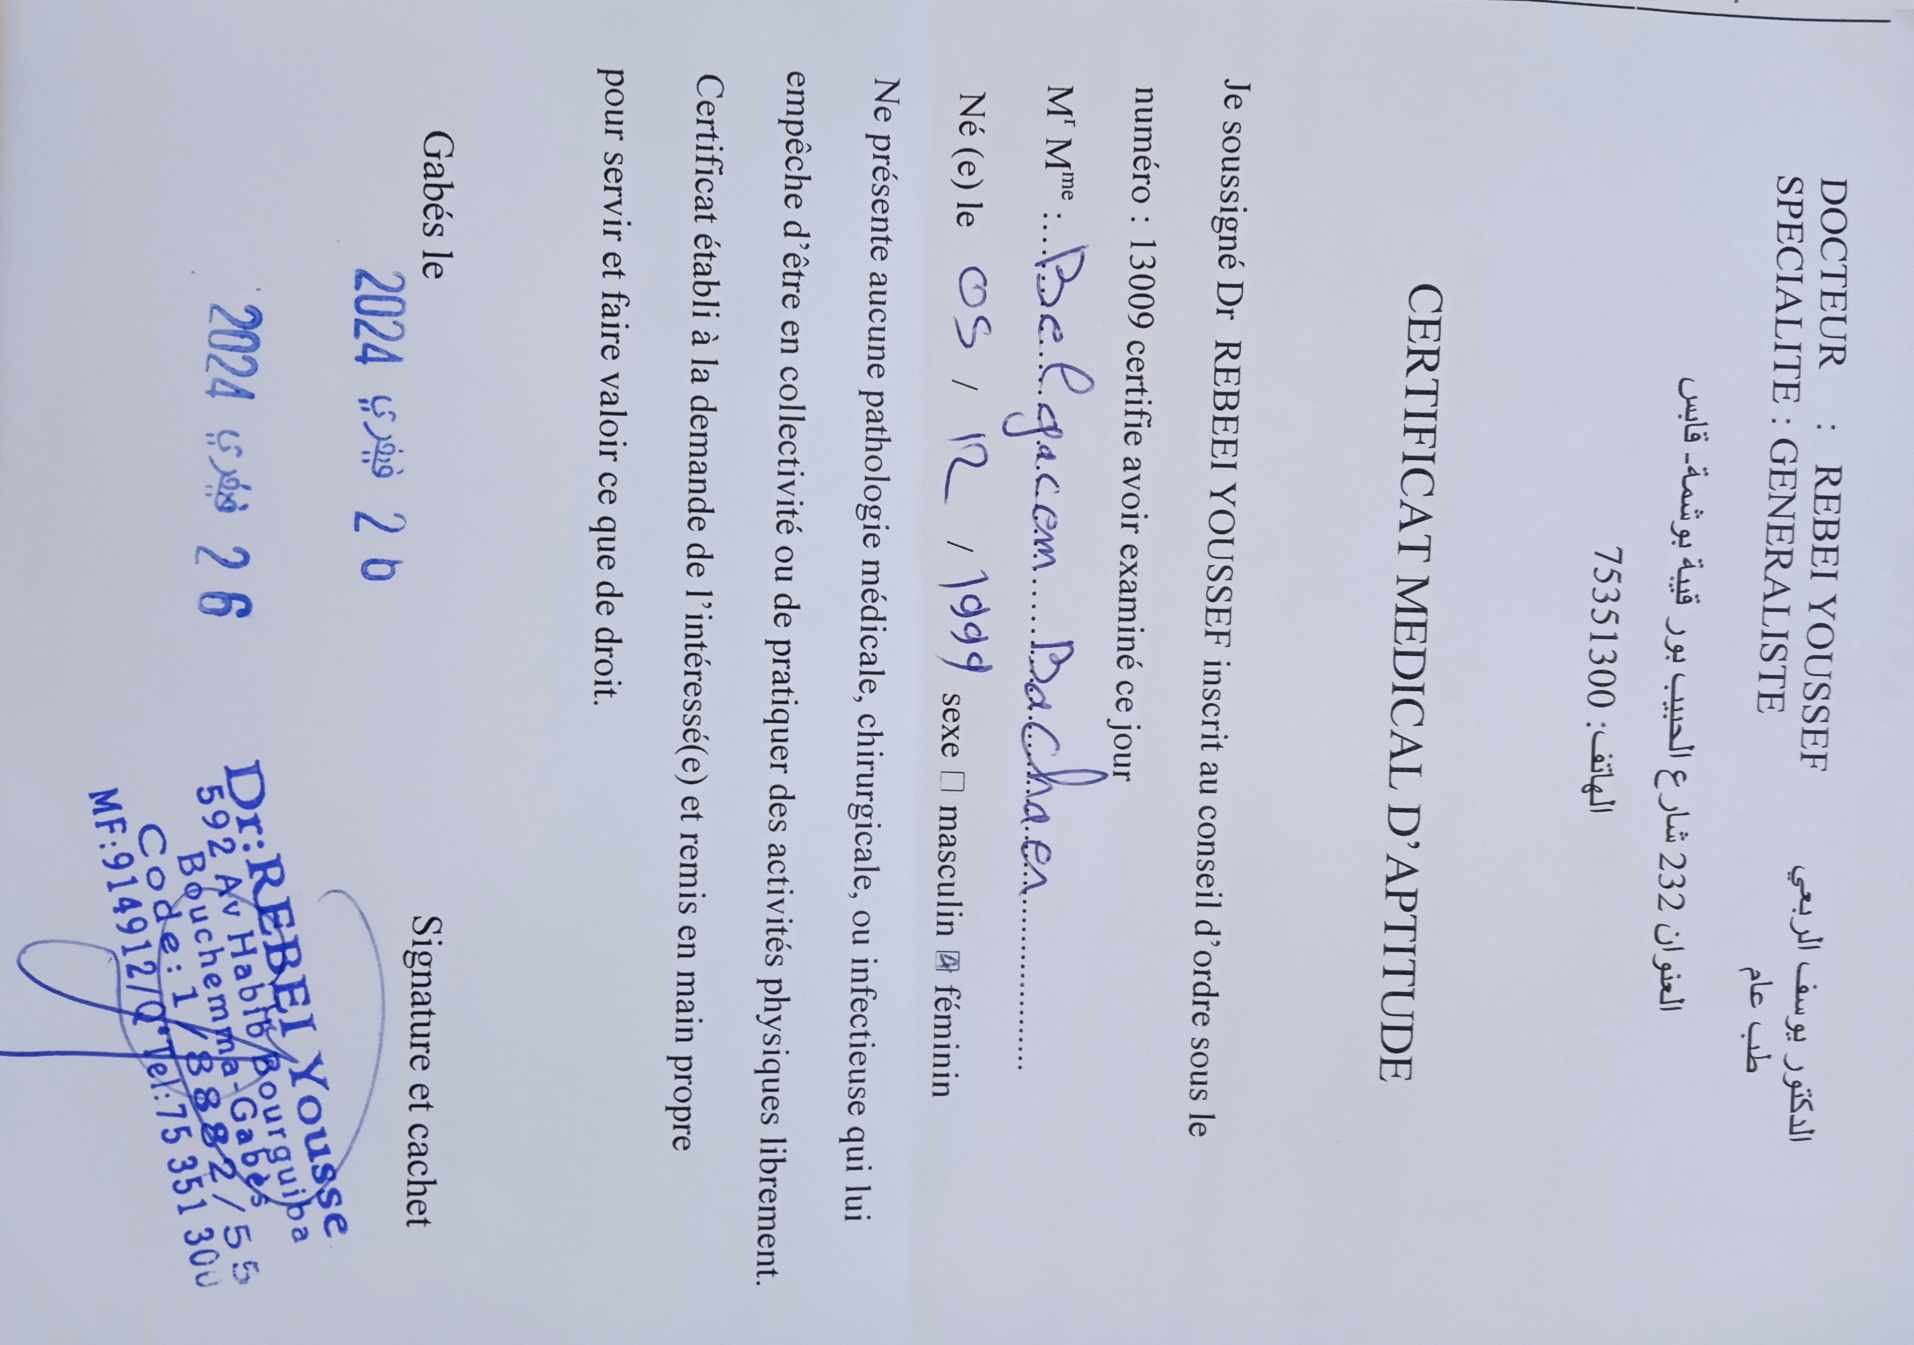 DOCTEUR : REBEI YOUSSEF الدكتور يوسف الربعي
SPECIALITE : GENERALISTE طب عام
العنوان 232 شارع الحبيب بور قيبة بوشمة- قابس
الهاتف: 75351300
CERTIFICAT MEDICAL D'APTITUDE
Je soussigné Dr REBEI YOUSSEF inscrit au conseil d'ordre sous le
numéro : 13009 certifie avoir examiné ce jour
Mr Mme :....Belgacem......Bachaen..................
Né (e) le 05 / 12 / 1999 sexe □ masculin ☑ féminin
Ne présente aucune pathologie médicale, chirurgicale, ou infectieuse qui lui
empêche d'être en collectivité ou de pratiquer des activités physiques librement.
Certificat établi à la demande de l'intéressé(e) et remis en main propre
pour servir et faire valoir ce que de droit.
Gabés le Signature et cachet
2024 فيفري 2 6
2024 فيفري 2 6
Dr:REBEI Yousse
592 Av Habib Bourguiba
Bouchemma-Gabès
Code:1/88882/55
MF:914912/Q*Tel:75 351 300